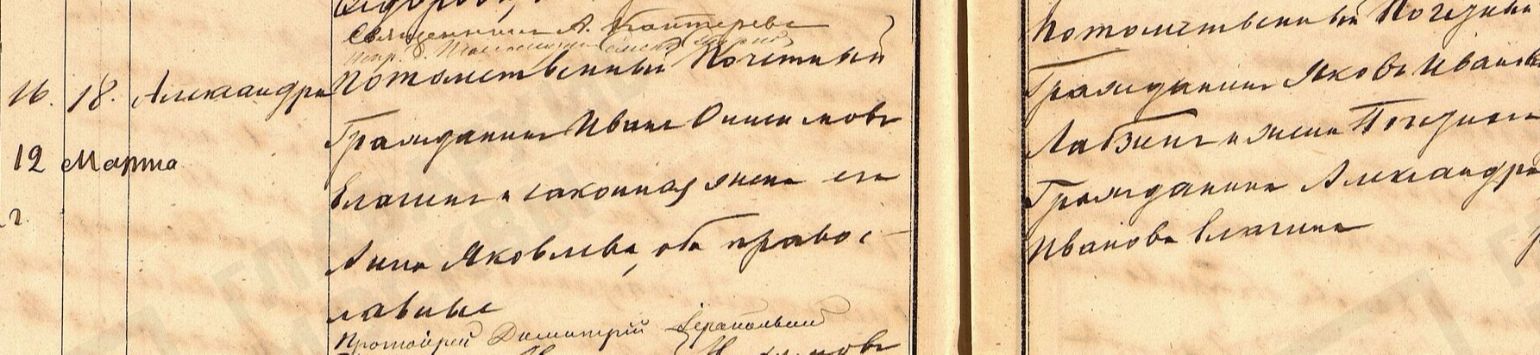 Священникъ А.
16. 18. Александра Потомственный Почетный
Гражданинъ Иванъ Онисимовъ
12 Марта
Елагинъ и законная жена его
Анна Яковлева, оба правос-
лавные
Протоіерей Димитрій
Потомственный Почетный
Гражданинъ Яковъ Иванов
Лабзинъ и жена Почетнаго
Гражданина Александра
Иванова Елагина